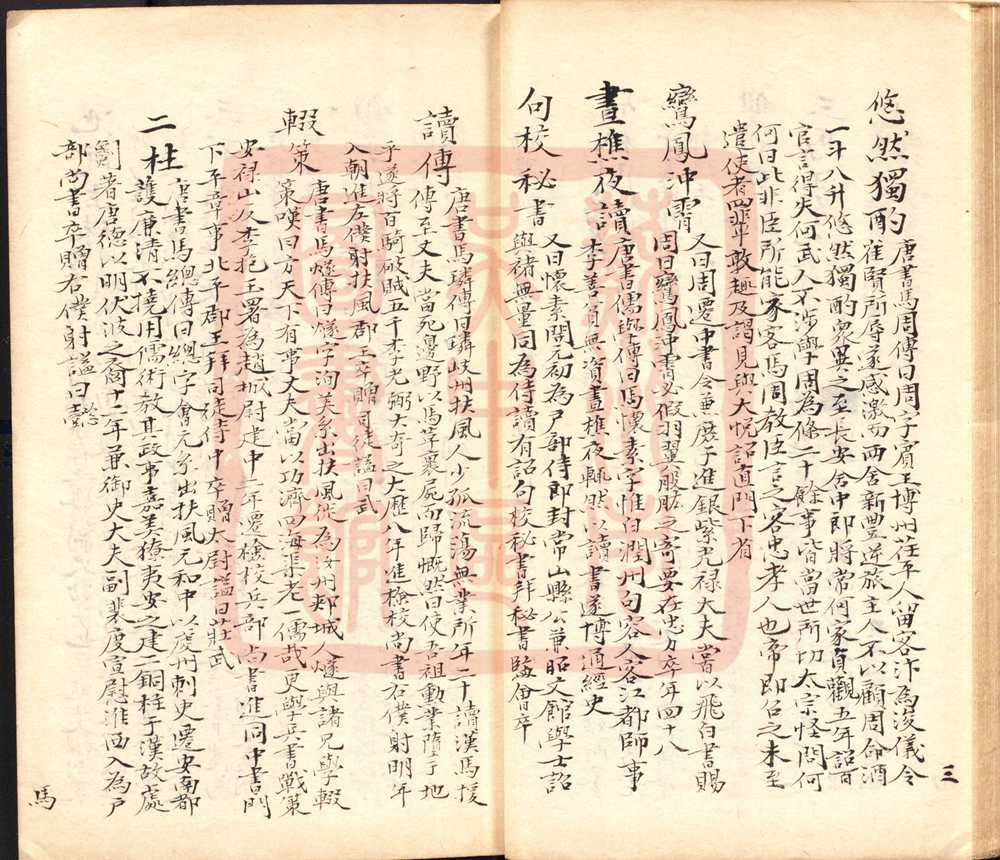 悠然獨酌
唐書馬周傳曰周字賓王博州茌平人留客汴為浚儀令
崔賢所辱遂感激而西舍新豐逆旅主人不以顧周命酒
一斗八升悠然獨酌衆異之至長安舍中郎將常何家貞觀五年詔百
官言得失何武人不涉學周為條二十餘事皆當世所切太宗怪問何
何曰此非臣所能家客馬周教臣言之客忠孝人也帝即召之未至
遣使者四輩敦趣及謁見與大悅詔直門下省
鸞鳳沖霄
又曰周遷中書令兼庶子進銀紫光祿大夫當以飛白書賜
周曰鸞鳳沖霄必假羽翼股肱之寄要在忠力卒年四十八
晝樵夜讀
唐書儒學傳曰馬懷素字惟白潤州句容人客江都師事
李善貧無資晝樵夜輒然以讀書遂博通經史
句校秘書
又曰懷素開元初為戶部侍郎封常山縣公兼昭文館學士詔
與禇無量同為侍讀有詔句校秘書拜秘書監會卒
三
讀傳
唐書馬璘傳曰璘岐州扶風人少孤流蕩無業所年二十讀漢馬援
傳至丈夫當死邊野以馬革裹屍而歸慨然曰使吾祖勳業墮于地
乎遂將百騎破賊五千李光弼大奇之大曆八年進檢校尚書右僕射明年
入朝進左僕射扶風郡王卒贈司徒謚曰武
輟策
唐書馬燧傳曰燧字洵美系出扶風徙為汝州郟城人燧與諸兄學輟
策嘆曰方天下有事丈夫當以功濟四海渠老一儒哉更學兵書戰策
安祿山及李抱玉署為趙城尉建中二年遷檢校兵部尚書進同中書門
下平章事北平郡王拜司徒侍中卒贈太尉謚曰莊武
二柱
唐書馬總傳曰總字會元系出扶風元和中以虔州刺史遷安南都
護廉清不撓用儒術教其政事嘉美獠夷安之建二銅柱于漢故處
劖著唐德以明伏波之裔十二年兼御史大夫副裴度宣慰淮西入為戶
部尚書卒贈右僕射謚曰懿
馬